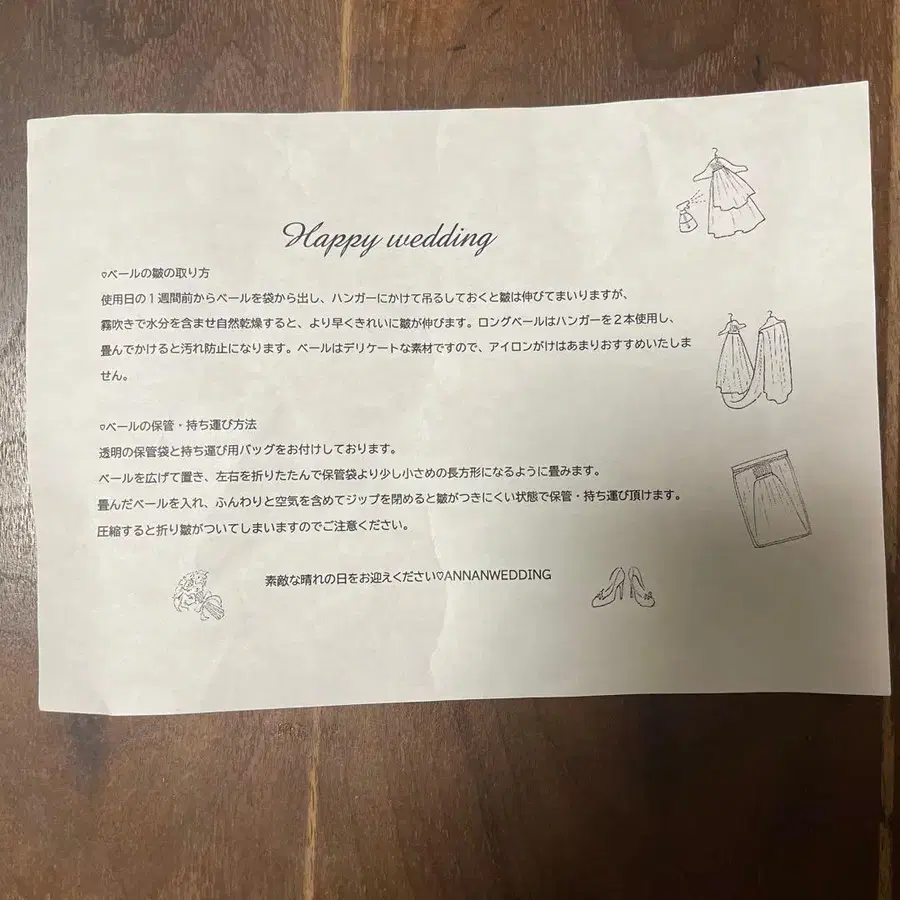 Happy wedding
♡ベールの皺の取り方
使用日の1週間前からベールを袋から出し、ハンガーにかけて吊るしておくと皺は伸びてまいりますが、
霧吹きで水分を含ませ自然乾燥すると、より早くきれいに皺が伸びます。ロングベールはハンガーを2本使用し、
畳んでかけると汚れ防止になります。ベールはデリケートな素材ですので、アイロンがけはあまりおすすめいたしま
せん。
♡ベールの保管・持ち運び方法
透明の保管袋と持ち運び用バッグをお付けしております。
ベールを広げて置き、左右を折りたたんで保管袋より少し小さめの長方形になるように畳みます。
畳んだベールを入れ、ふんわりと空気を含めてジップを閉めると皺がつきにくい状態で保管・持ち運び頂けます。
圧縮すると折り皺がついてしまいますのでご注意ください。
素敵な晴れの日をお迎えください♡ANNANWEDDING